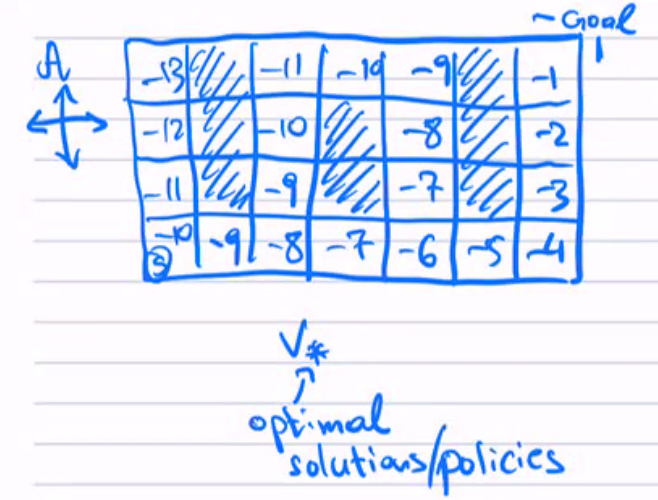 ~ Goal
A
-13 -11 -10 -9 -1
-12 -10 -8 -2
-11 -9 -7 -3
-10 -9 -8 -7 -6 -5 -4
S
V*
optimal
solutions/policies